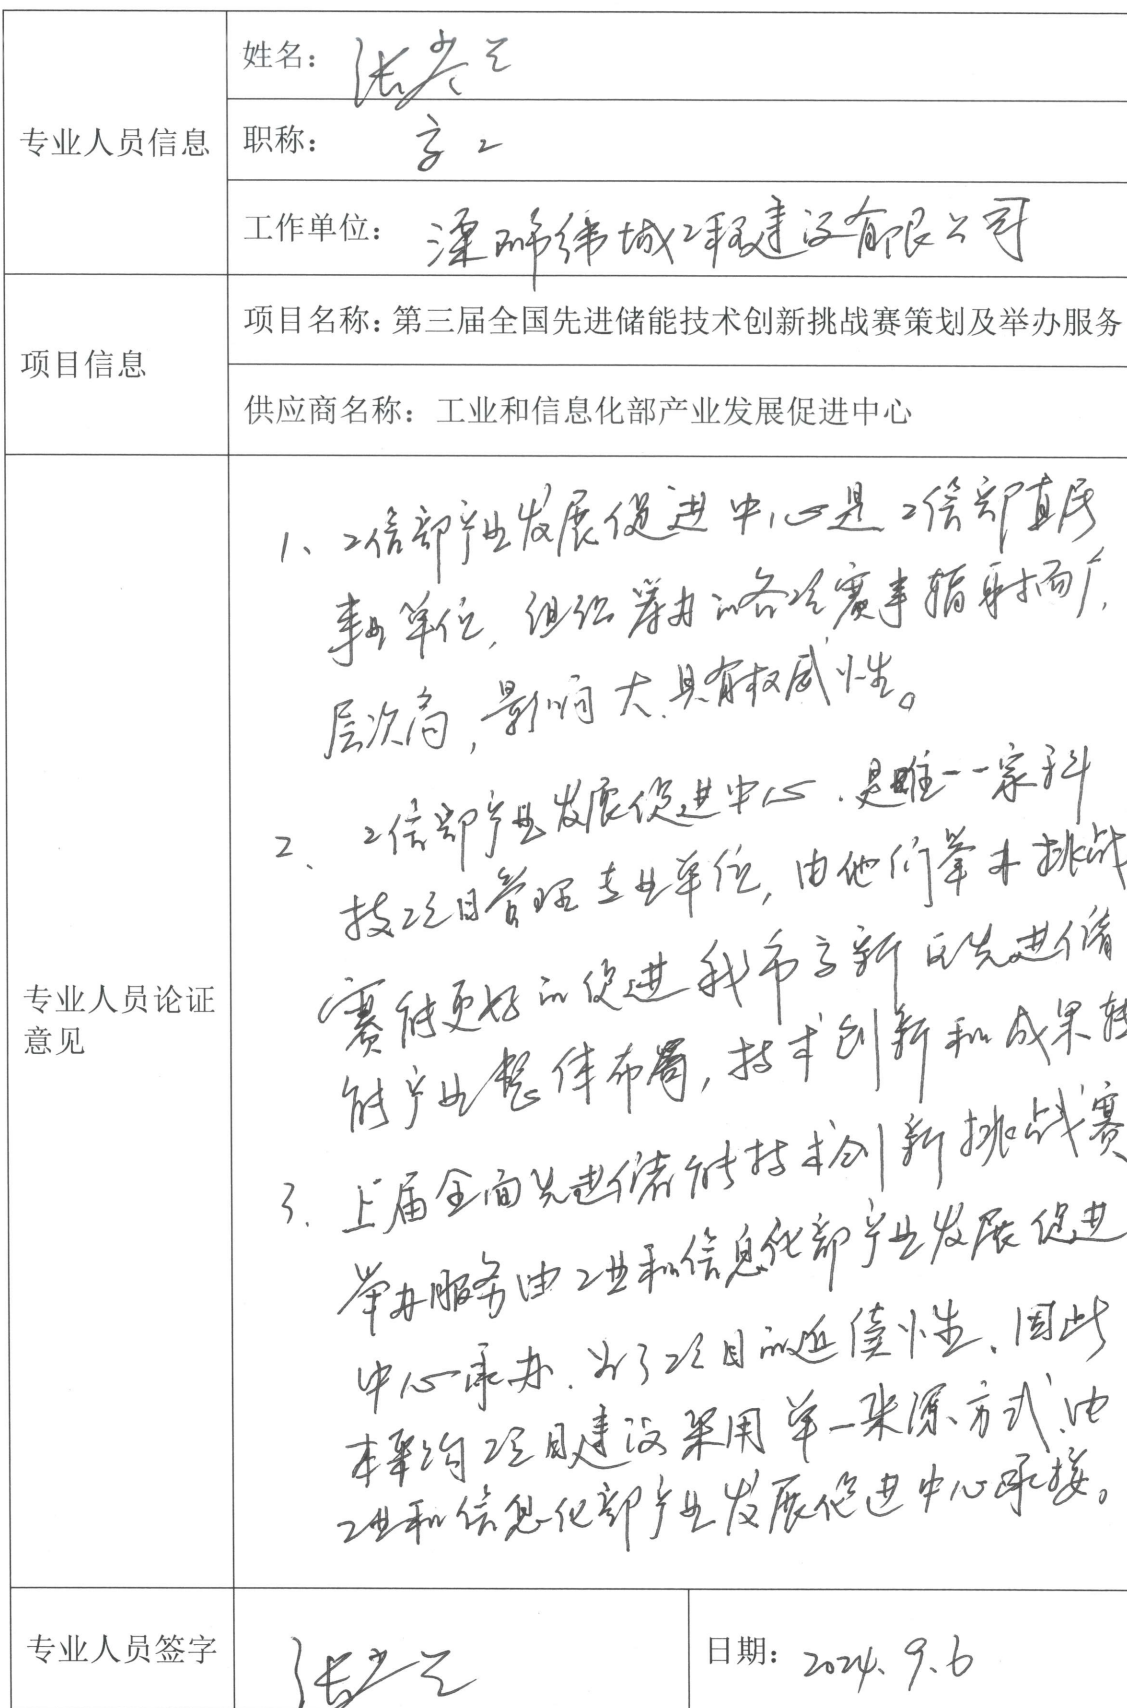 专业人员信息
姓名：张
职称：高工
工作单位：溧阳城工程建设有限公司
项目信息
项目名称：第三届全国先进储能技术创新挑战赛策划及举办服务
供应商名称：工业和信息化部产业发展促进中心
专业人员论证
意见
1、工信部产业发展促进中心是工信部直属
事业单位，组织举办的各项赛事辐射面广，
层次高，影响大，具有权威性。
2、工信部产业发展促进中心，是唯一一家科
技项目管理专业单位，由他们举办挑战
赛能更好的促进我市高新区先进储
能产业整体布局，技术创新和成果转
3、上届全面先进储能技术创新挑战赛
举办服务由工业和信息化部产业发展促进
中心承办，为了项目的延续性，因此
本采购项目建议采用单一来源方式，由
工业和信息化部产业发展促进中心承接。
专业人员签字
张
日期：2024.9.6